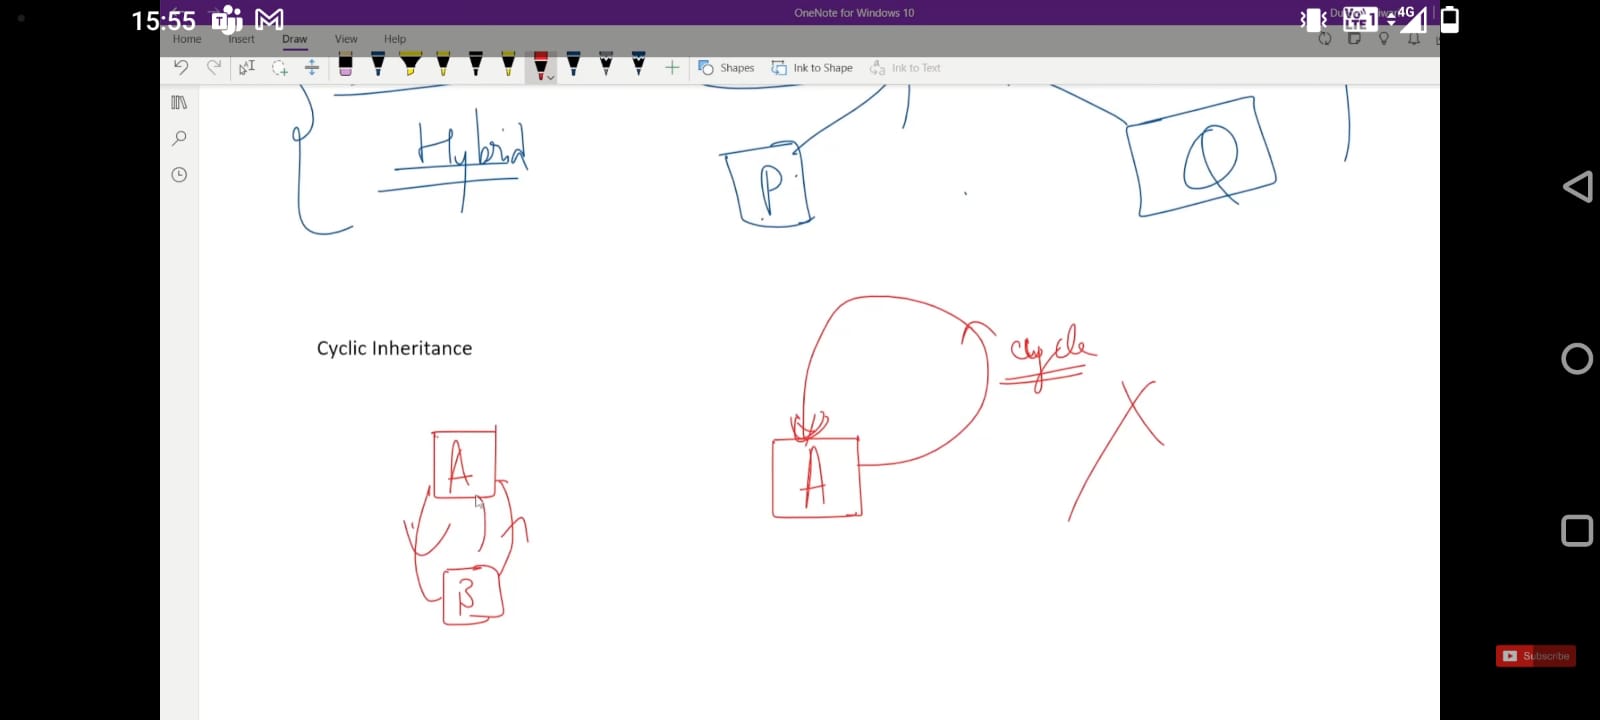 15:55
OneNote for Windows 10
VoD 1
LTE
4G
Home Insert Draw View Help
Shapes Ink to Shape Ink to Text
Hybrid
P
Q
Cyclic Inheritance
cycle
A
A
B
Subscribe